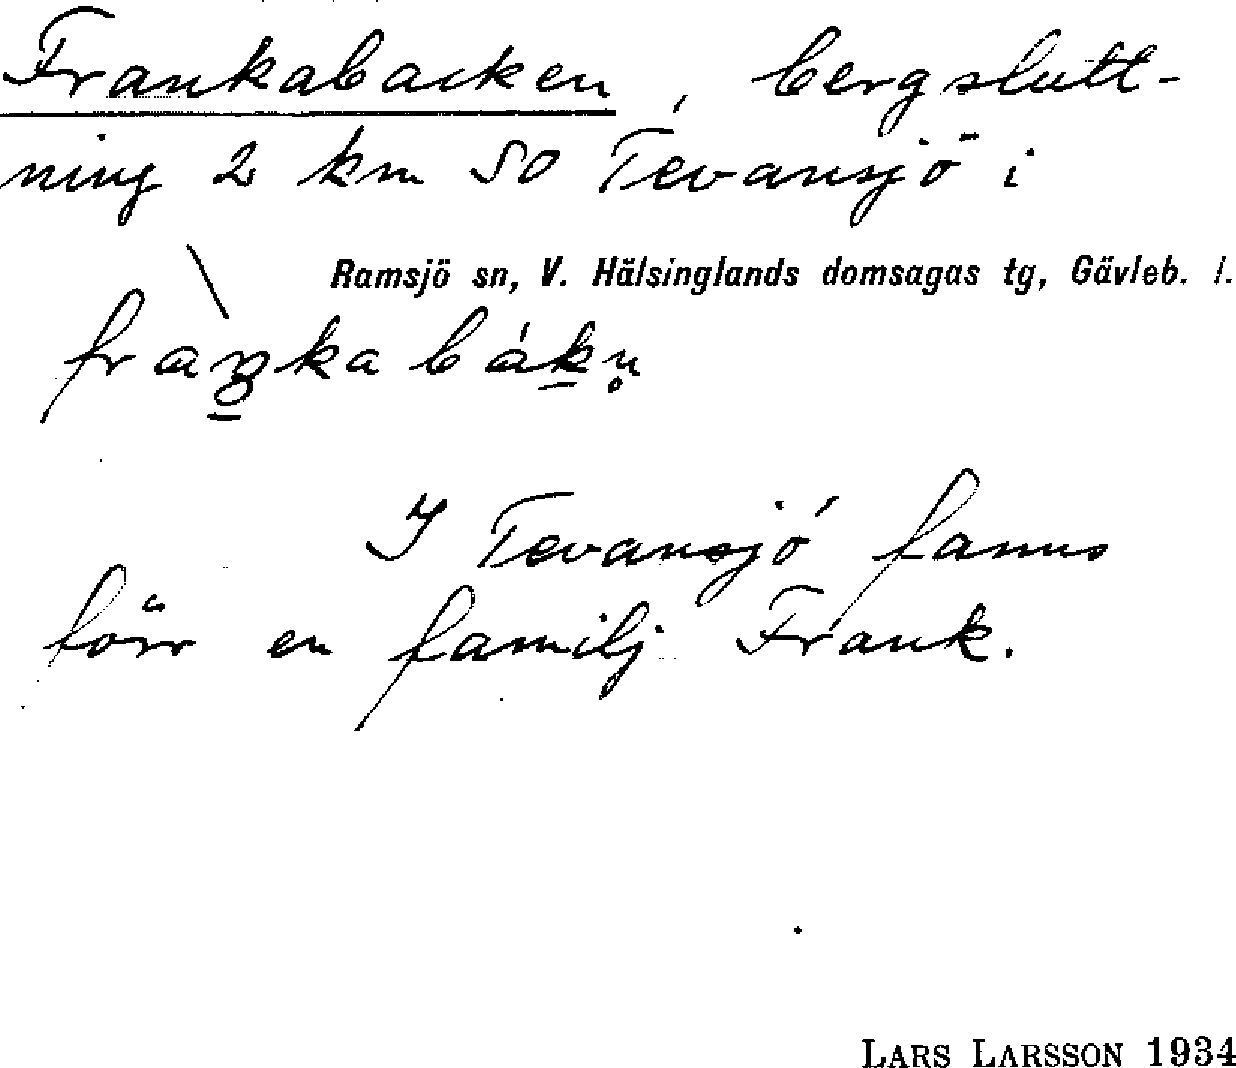 Frankabacken, bergslutt-
ning 2 km SO Tevansjö i
Ramsjö sn, V. Hälsinglands domsagas tg, Gävleb. l.
fràŋka bákn̥
I Tevansjö fanns
förr en familj Frank.
LARS LARSSON 1934